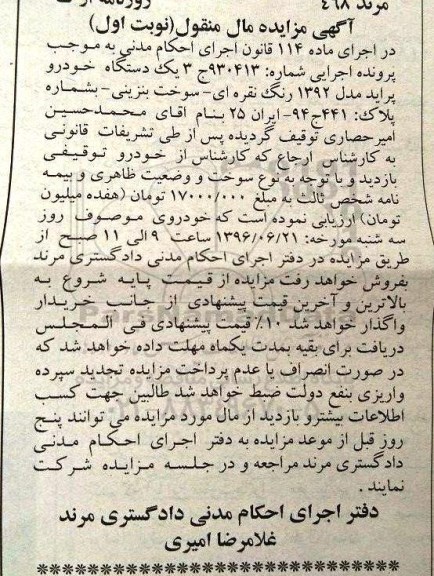 مرند ۴۶۸
آگهی مزایده مال منقول(نوبت اول)
در اجرای ماده ۱۱۴ قانون اجرای احکام مدنی به موجب
پرونده اجرایی شماره: ۹۳۰۴۱۳ج ۳ یک دستگاه خودرو
پراید مدل ۱۳۹۲ رنگ نقره ای-سوخت بنزینی-بشماره
پلاک: ۴۴۱ج۹۴-ایران ۲۵ بنام اقای محمدحسین
امیرحصاری توقیف گردیده پس از طی تشریفات قانونی
به کارشناس ارجاع که کارشناس از خودرو توقیفی
بازدید و با توجه به نوع سوخت و وضعیت ظاهری و بیمه
نامه شخص ثالث به مبلغ ۱۷۰۰۰/۰۰۰ تومان (هفده میلیون
تومان) ارزیابی نموده است که خودروی موصوف روز
سه شنبه مورخه: ۱۳۹۶/۰۶/۲۱ ساعت ۹ الی ۱۱ صبح از
طریق مزایده در دفتر اجرای احکام مدنی دادگستری مرند
بفروش خواهد رفت مزایده از قیمت پایه شروع به
بالاترین و آخرین قیمت پیشنهادی از جانب خریدار
واگذار خواهد شد ۱۰٪ قیمت پیشنهادی فی المجلس
دریافت برای بقیه بمدت یکماه مهلت داده خواهد شد که
در صورت انصراف یا عدم پرداخت مزایده تجدید سپرده
واریزی بنفع دولت ضبط خواهد شد طالبین جهت کسب
اطلاعات بیشترو بازدید از مال مورد مزایده می توانند پنج
روز قبل از موعد مزایده به دفتر اجرای احکام مدنی
دادگستری مرند مراجعه و در جلسه مزایده شرکت
نمایند.
دفتر اجرای احکام مدنی دادگستری مرند
غلامرضا امیری
ParsNamadData